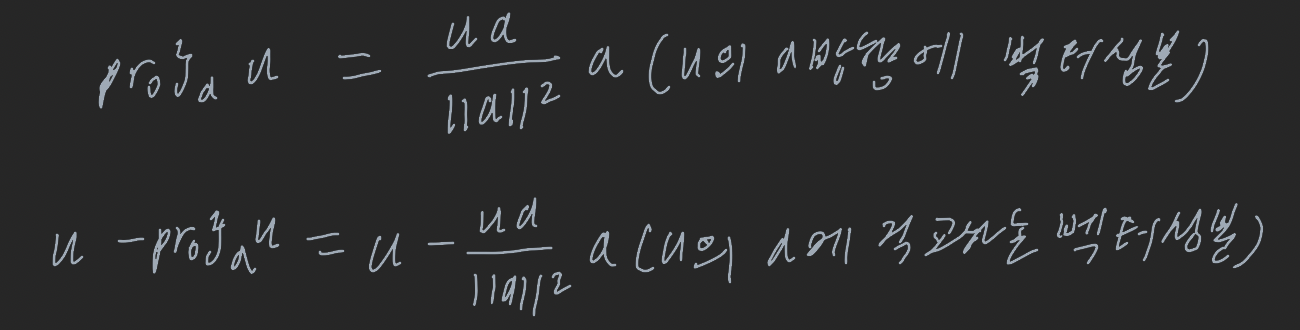 proj_a u = ua / ||a||² a (u의 a방향에 벡터성분)
u - proj_a u = u - ua / ||a||² a (u의 a에 직교하는 벡터성분)